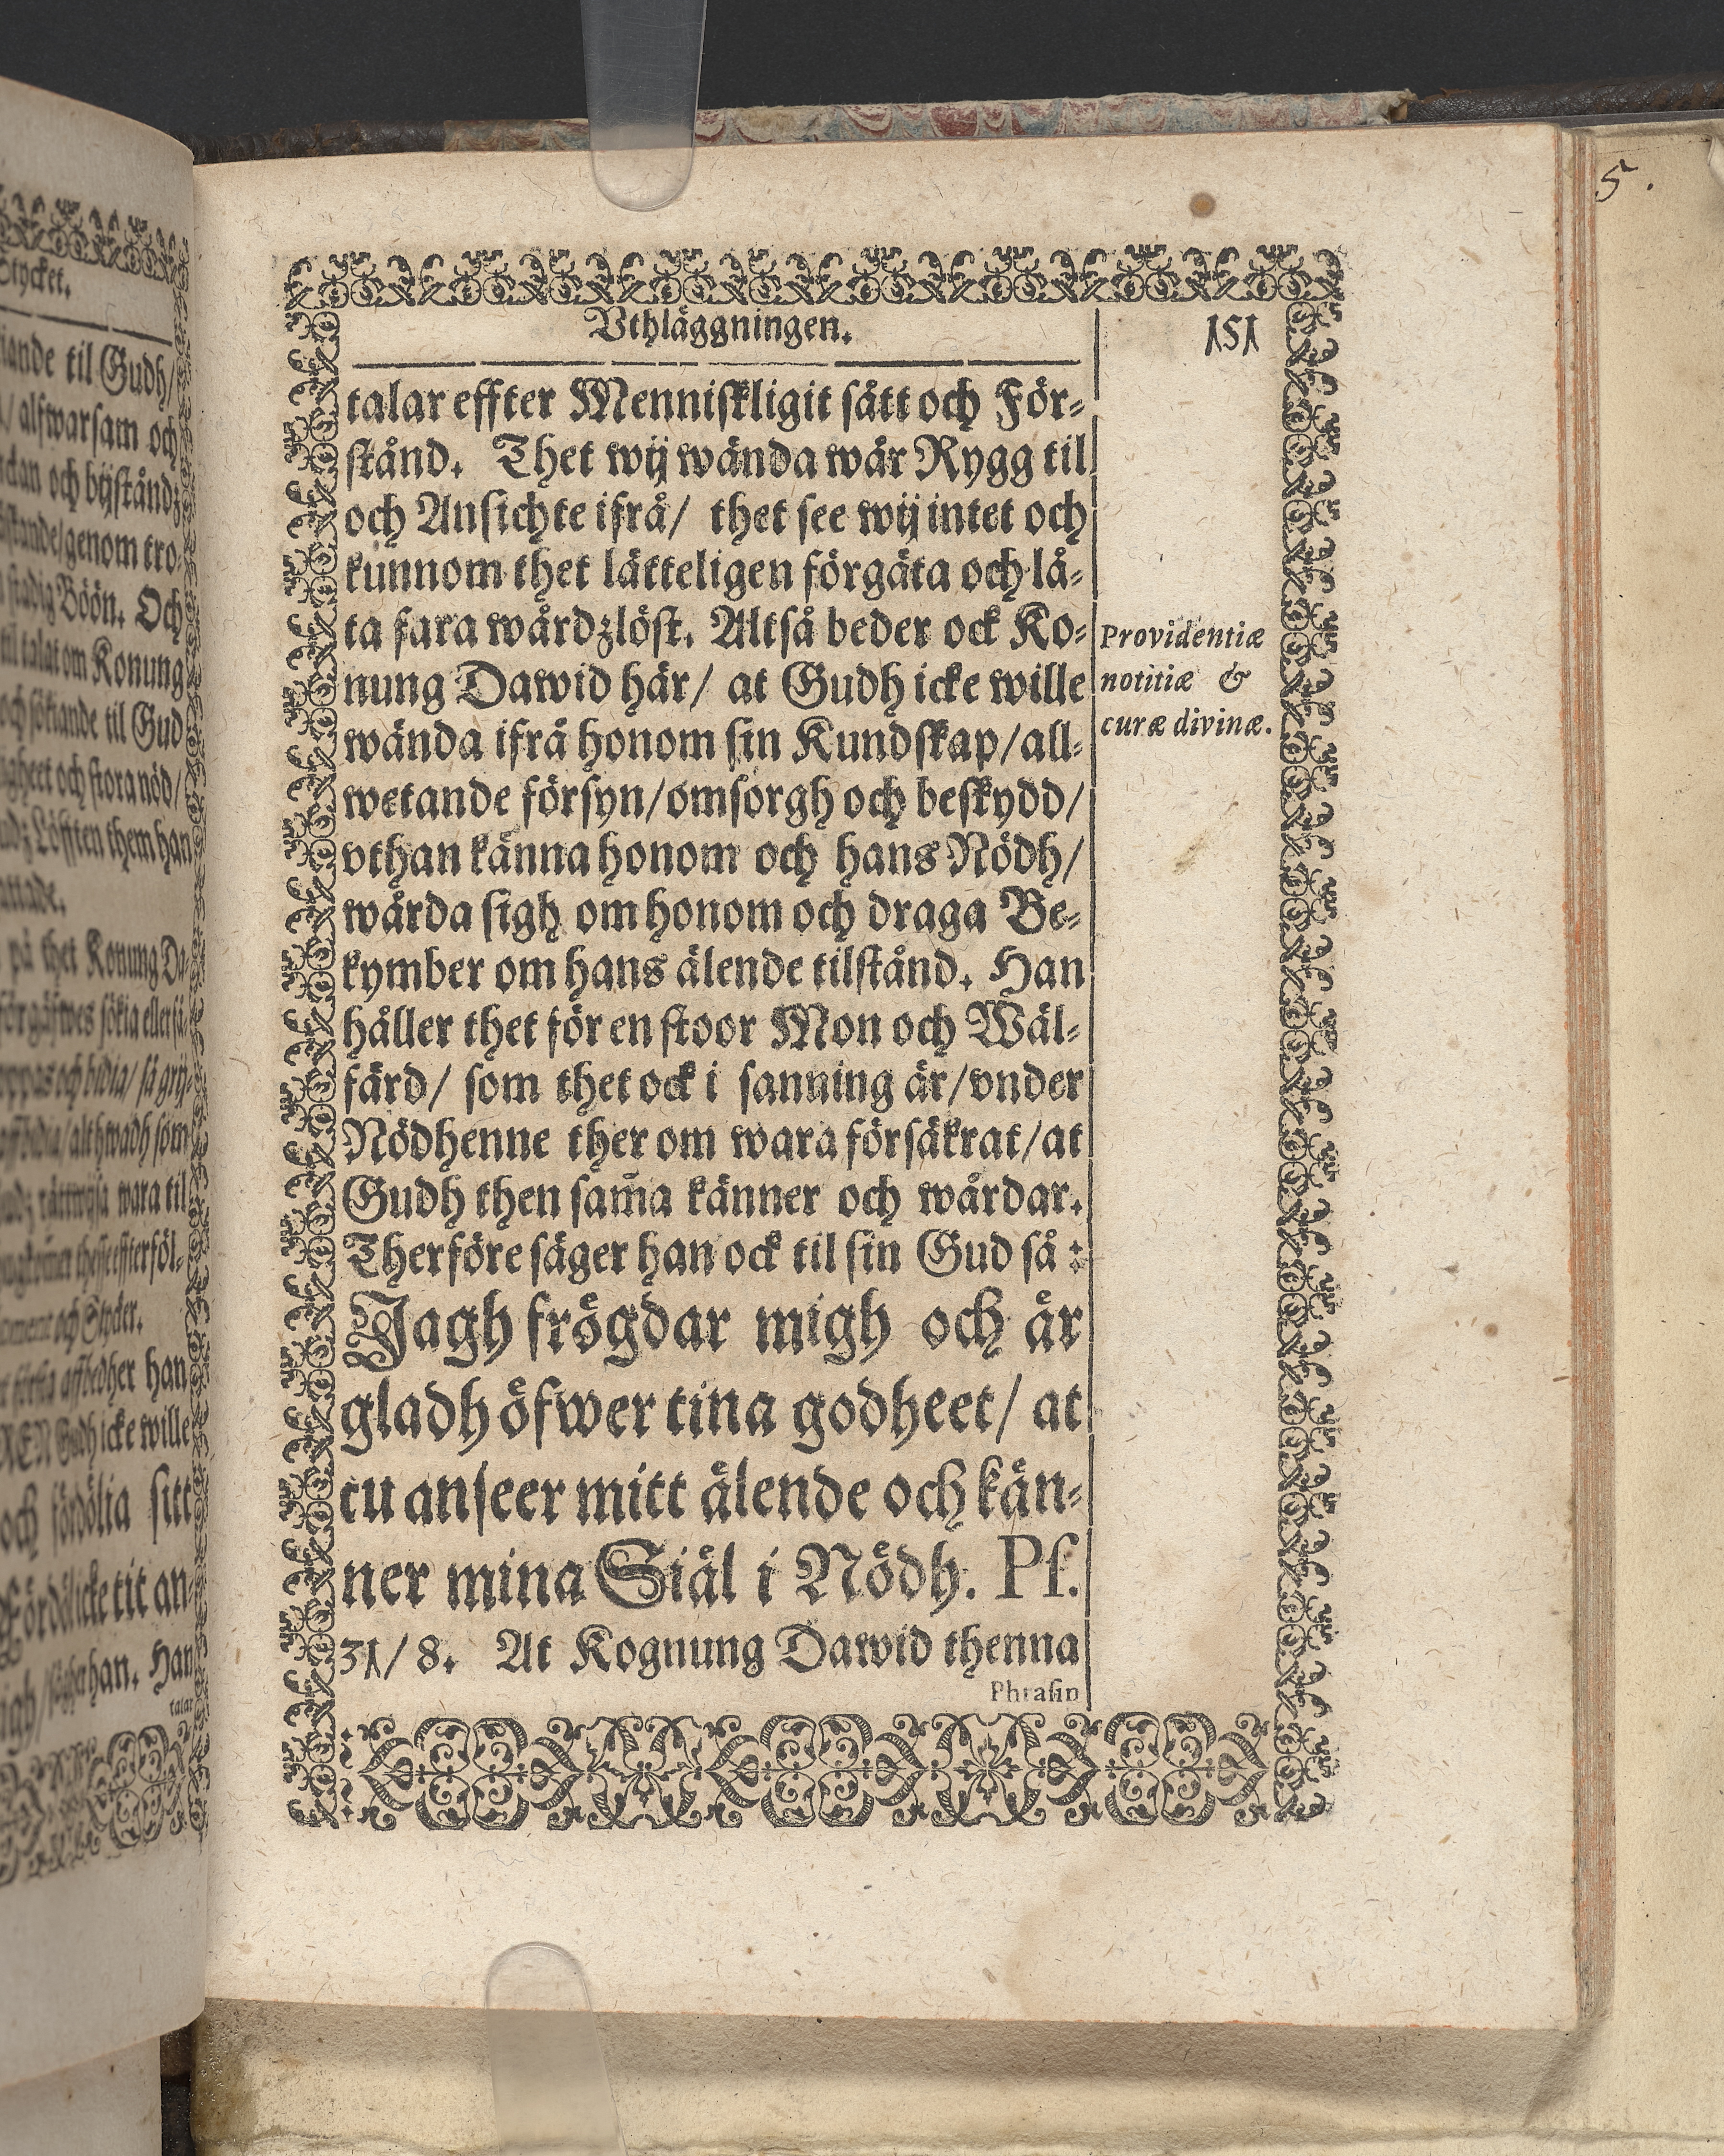 Vthläggningen.
151
talar effter Menniſkligit ſätt och För-
ſtånd. Thet wij wända wår Rygg til
och Anſichte ifrå/ thet ſee wij intet och
kunnom thet lätteligen förgäta och lå-
ta fara wårdzlöſt. Altſå beder ock Ko-
nung Dawid här/ at Gudh icke wille
wända ifrå honom ſin Kundſkap/all-
wetande förſyn/omſorgh och beſkydd/
vthan känna honom och hans Nödh/
wårda ſigh om honom och draga Be-
kymber om hans älende tilſtånd. Han
håller thet för en ſtoor Mon och Wäl-
färd/ ſom thet ock i ſanning är/vnder
Nödhenne ther om wara förſäkrat/at
Gudh then ſam̄a känner och wårdar.
Therföre ſäger han ock til ſin Gud ſå:
Jagh frögdar migh och är
gladh öfwer tina godheet/ at
tu anſeer mitt älende och kän-
ner mina Siäl i Nödh. Pſ.
31/8. At Kognung Dawid thenna
Phraſin
Providentiæ
notitiæ &
curæ divinæ.
5.
Stycket.
til Gudh/
alfwarſam och
och bijſtånd
genom tro-
Böön. Och
talat om Konung
och ſökiande til Gud
och ſtora nöd/
Löfften them han
på thet Konung Da-
och bidia/ ſå
althwadh ſom
wara til
och Stycker.
han
Gudh icke wille
och fördölia ſitt
Fördölicke titt an-
han. Han
talar